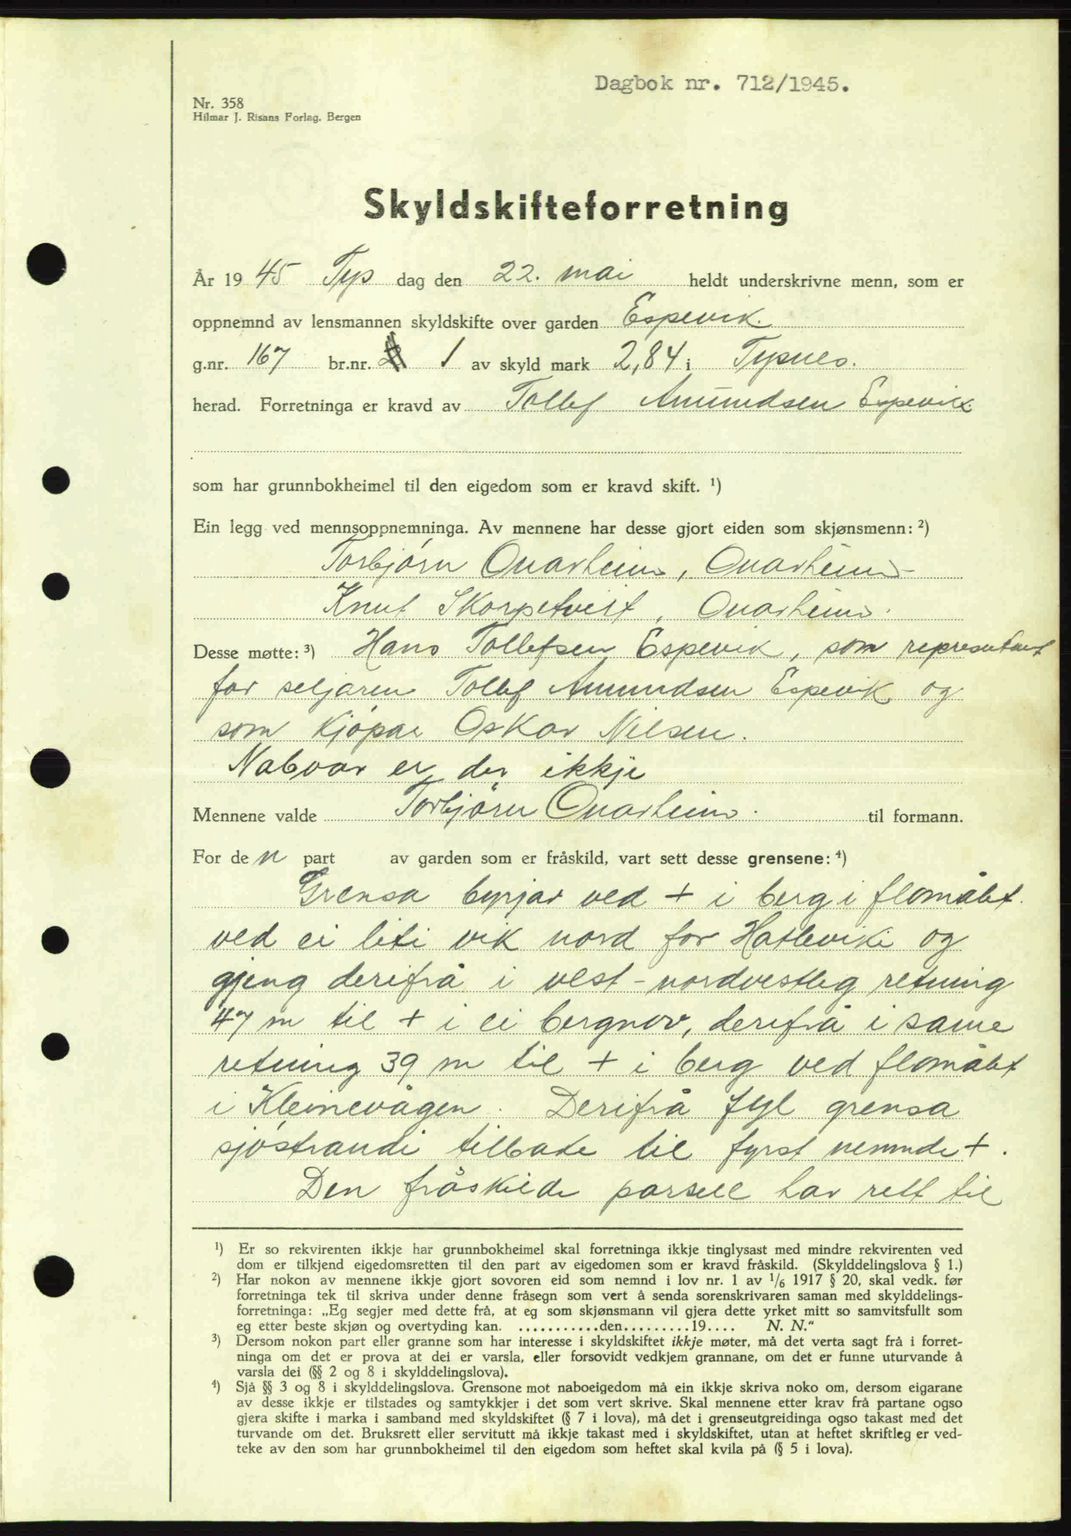 Dagbok nr. 712/1945.
Nr. 358
Hilmar J. Risans Forlag. Bergen
Skyldskifteforretning
År 1945 Tys dag den 22. mai heldt underskrivne menn, som er
oppnemnd av lensmannen skyldskifte over garden Espevik.
g.nr. 167 br.nr. 1 av skyld mark 2,84 i Tysnes.
herad. Forretninga er kravd av Tollef Amundsen Espevik
som har grunnbokheimel til den eigedom som er kravd skift. ¹)
Ein legg ved mennsoppnemninga. Av mennene har desse gjort eiden som skjønsmenn: ²)
Torbjørn Onarheim, Onarheim
Knut Skorpetveit, Onarheim.
Desse møtte: ³) Hans Tollefsen Espevik, som representant
for seljaren Tollef Amundsen Espevik og
som kjøpar Oskar Nilsen.
Naboar er der ikkje
Mennene valde Torbjørn Onarheim. til formann.
For den part av garden som er fråskild, vart sett desse grensene: ⁴)
Grensa byrjar ved + i berg i flomålet
ved ei liti vik nord for Hatleviki og
gjeng derifrå i vest-nordvestleg retning
47 m til + i ei bergnov, derifrå i same
retning 39 m til + i berg ved flomålet
i Kleinevågen. Derifrå fyl grensa
sjøstrandi tilbake til fyrst nemnde +.
Den fråskilde parsell har rett til
¹) Er so rekvirenten ikkje har grunnbokheimel skal forretninga ikkje tinglysast med mindre rekvirenten ved
dom er tilkjend eigedomsretten til den part av eigedomen som er kravd fråskild. (Skylddelingslova § 1.)
²) Har nokon av mennene ikkje gjort sovoren eid som nemnd i lov nr. 1 av 1/6 1917 § 20, skal vedk. før
forretninga tek til skriva under denne fråsegn som vert å senda sorenskrivaren saman med skylddelings-
forretninga: „Eg segjer med dette frå, at eg som skjønsmann vil gjera dette yrket mitt so samvitsfullt som
eg etter beste skjøn og overtyding kan. ...........den.........19.... N. N."
³) Dersom nokon part eller granne som har interesse i skyldskiftet ikkje møter, må det verta sagt frå i forret-
ninga om det er prova at dei er varsla, eller forsovidt vedkjem grannane, om det er funne uturvande å
varsla dei (§§ 2 og 8 i skylddelingslova).
⁴) Sjå §§ 3 og 8 i skylddelingslova. Grensone mot naboeigedom må ein ikkje skriva noko om, dersom eigarane
av desse ikkje er tilstades og samtykkjer i det som vert skrive. Skal mennene etter krav frå partane ogso
gjera skifte i marka i samband med skyldskiftet (§ 7 i lova), må det i grenseutgreidinga ogso takast med det
turvande om det. Bruksrett eller servitutt må ikkje takast med i skyldskiftet, utan at heftet skriftleg er ved-
teke av den som har grunnbokheimel til den eigedom som heftet skal kvila på (§ 5 i lova).